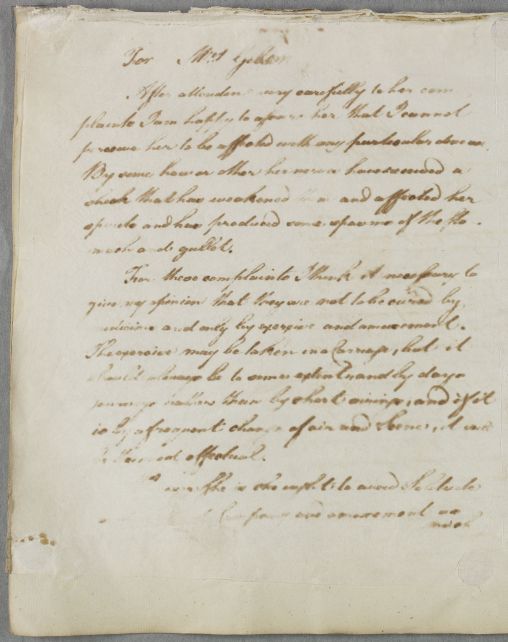 For Mrs
After attending very carefully to her com
plaints I am happy to assure her that I cannot
perceive her to be affected with any particular disease.
By some how or other her nerves have received a
shock that has weakened them and affected her
spirits and has produced some spasms of the sto
mach and gullet.
For these complaints I think it necessary to
give my opinion that they are not to be cured by
medicine and only by exercise and amusement.
The exercise may be taken in a Carriage, but it
should always be to some extent and by days
journeys rather than by short airings, and if it
is by a frequent change of air and Scene, it will
be the most effectual.
she ought to avoid Solitude
Company and amusement as
much